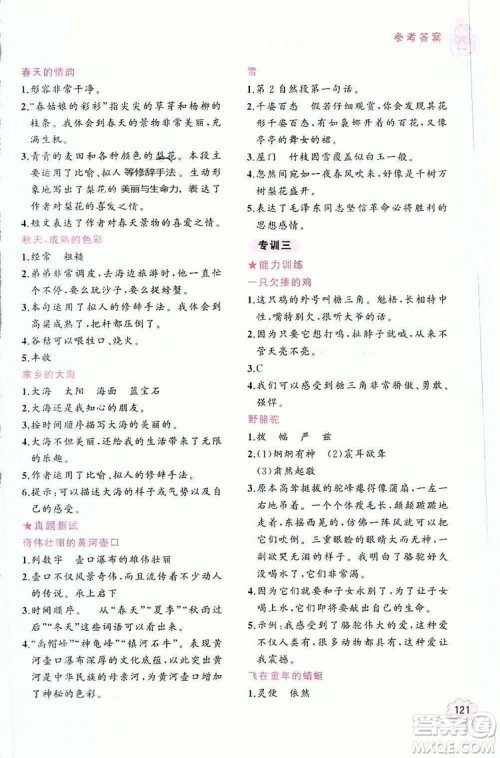 参考答案
春天的情韵
1. 形容非常干净。
2. “春姑娘的彩衫”指尖尖的草芽和杨柳的
枝条。我体会到春天的景物非常美丽，充
满生机。
3. 青青的麦田和各种颜色的梨花。本段主要
运用了比喻、拟人 等修辞手法。生动形
象地写出了梨花的 美丽与生命力，表达了
作者对梨花的喜发之情。
4. 短文表达了作者对春天景物的喜爱之情。
秋天，成熟的色彩
1. 经常　粗糙
2. 弟弟非常调皮，去海边旅游时，他一会儿
不是要去玩沙子，就是要去捉螃蟹。
3. 本句运用了拟人的修辞手法，使我体会到
高粱成熟了，把杆都压弯了。
4. 谷秸可以喂牲口、烧火。
5. 丰收
家乡的大海
1. 大海　太阳　海面　蓝宝石
2. 大海是我知心的朋友。
3. 按时间顺序描写大海的美丽的。
4. 大海不仅非常美丽，还能带给我们无穷
的乐趣。
5. 作者运用了比喻、拟人的修辞手法。
6. 提示：可以描写大海的样子或给你带来的
感受。
★真题测试
奇伟壮丽的黄河壶口
1. 列数字　壶口瀑布的雄伟壮丽
2. 壶口不仅风景奇伟，而且流传着不少动人
的传说。承上启下
3. 时间顺序。从“春天”“夏季”“秋雨过
后”“冬天”这些词语可以看出来。
4. “禹帽峰”“神龟峰”“镇河石牛”。表现了
黄河壶口瀑布深厚的文化内涵，以此突出
黄河是中华民族的母亲河，为黄河壶口增
添了神奇的色彩。
雪
1. 第 2 自然段第一句话。
2. 千姿百态　假若仔细观赏，我们会发现其花
形千姿百态，有如袅娜开放的花朵，又像
亭亭的舞女的裙。
3. 屋门　竹枝因雪覆盖似白玉一样。
4. 忽然间就如一夜春风吹来，好像是千树万
树梨花开。
5. 表达了毛泽东同志坚信革命必将胜利的
思想感情。
专训三
★能力训练
一只欠揍的鸡
1. 这只鸡的外号叫糖三角。魁梧、长相有特
性，嘴特别欠，很听大爷的话。
2. 因为它想打鸣，扯脖子就打鸣，从来不
管天亮不亮。
3. C
4. 我们可以感受到糖三角非常骄傲、勇敢、
强悍。
野骆驼
1. 拔　幅　严　兹
2. (1)炯炯有神　(2)震耳欲聋
(3)肃然起敬
3. 原本高耸挺拔的驼峰瘪成蒲扇，没有了
肉，东摇西晃的，仿佛一阵风就可以把
它们吹倒。三重眼睑的眼睛大大地睁着，
黯淡无光。我明白了骆驼奶奶没奶了，
它非常悲伤。
4. 因为它要保护自己的儿女，为了让子女
喝上水，它甘愿牺牲自己，表现了母驼
对子女深沉的爱。
5. 示例：我感受到了骆驼妈妈的爱，这种爱
令人感动。很多动物都具有这样的爱，
这样的爱感人至深。
飞在童年的蜻蜓
1. 灵便　依然
121